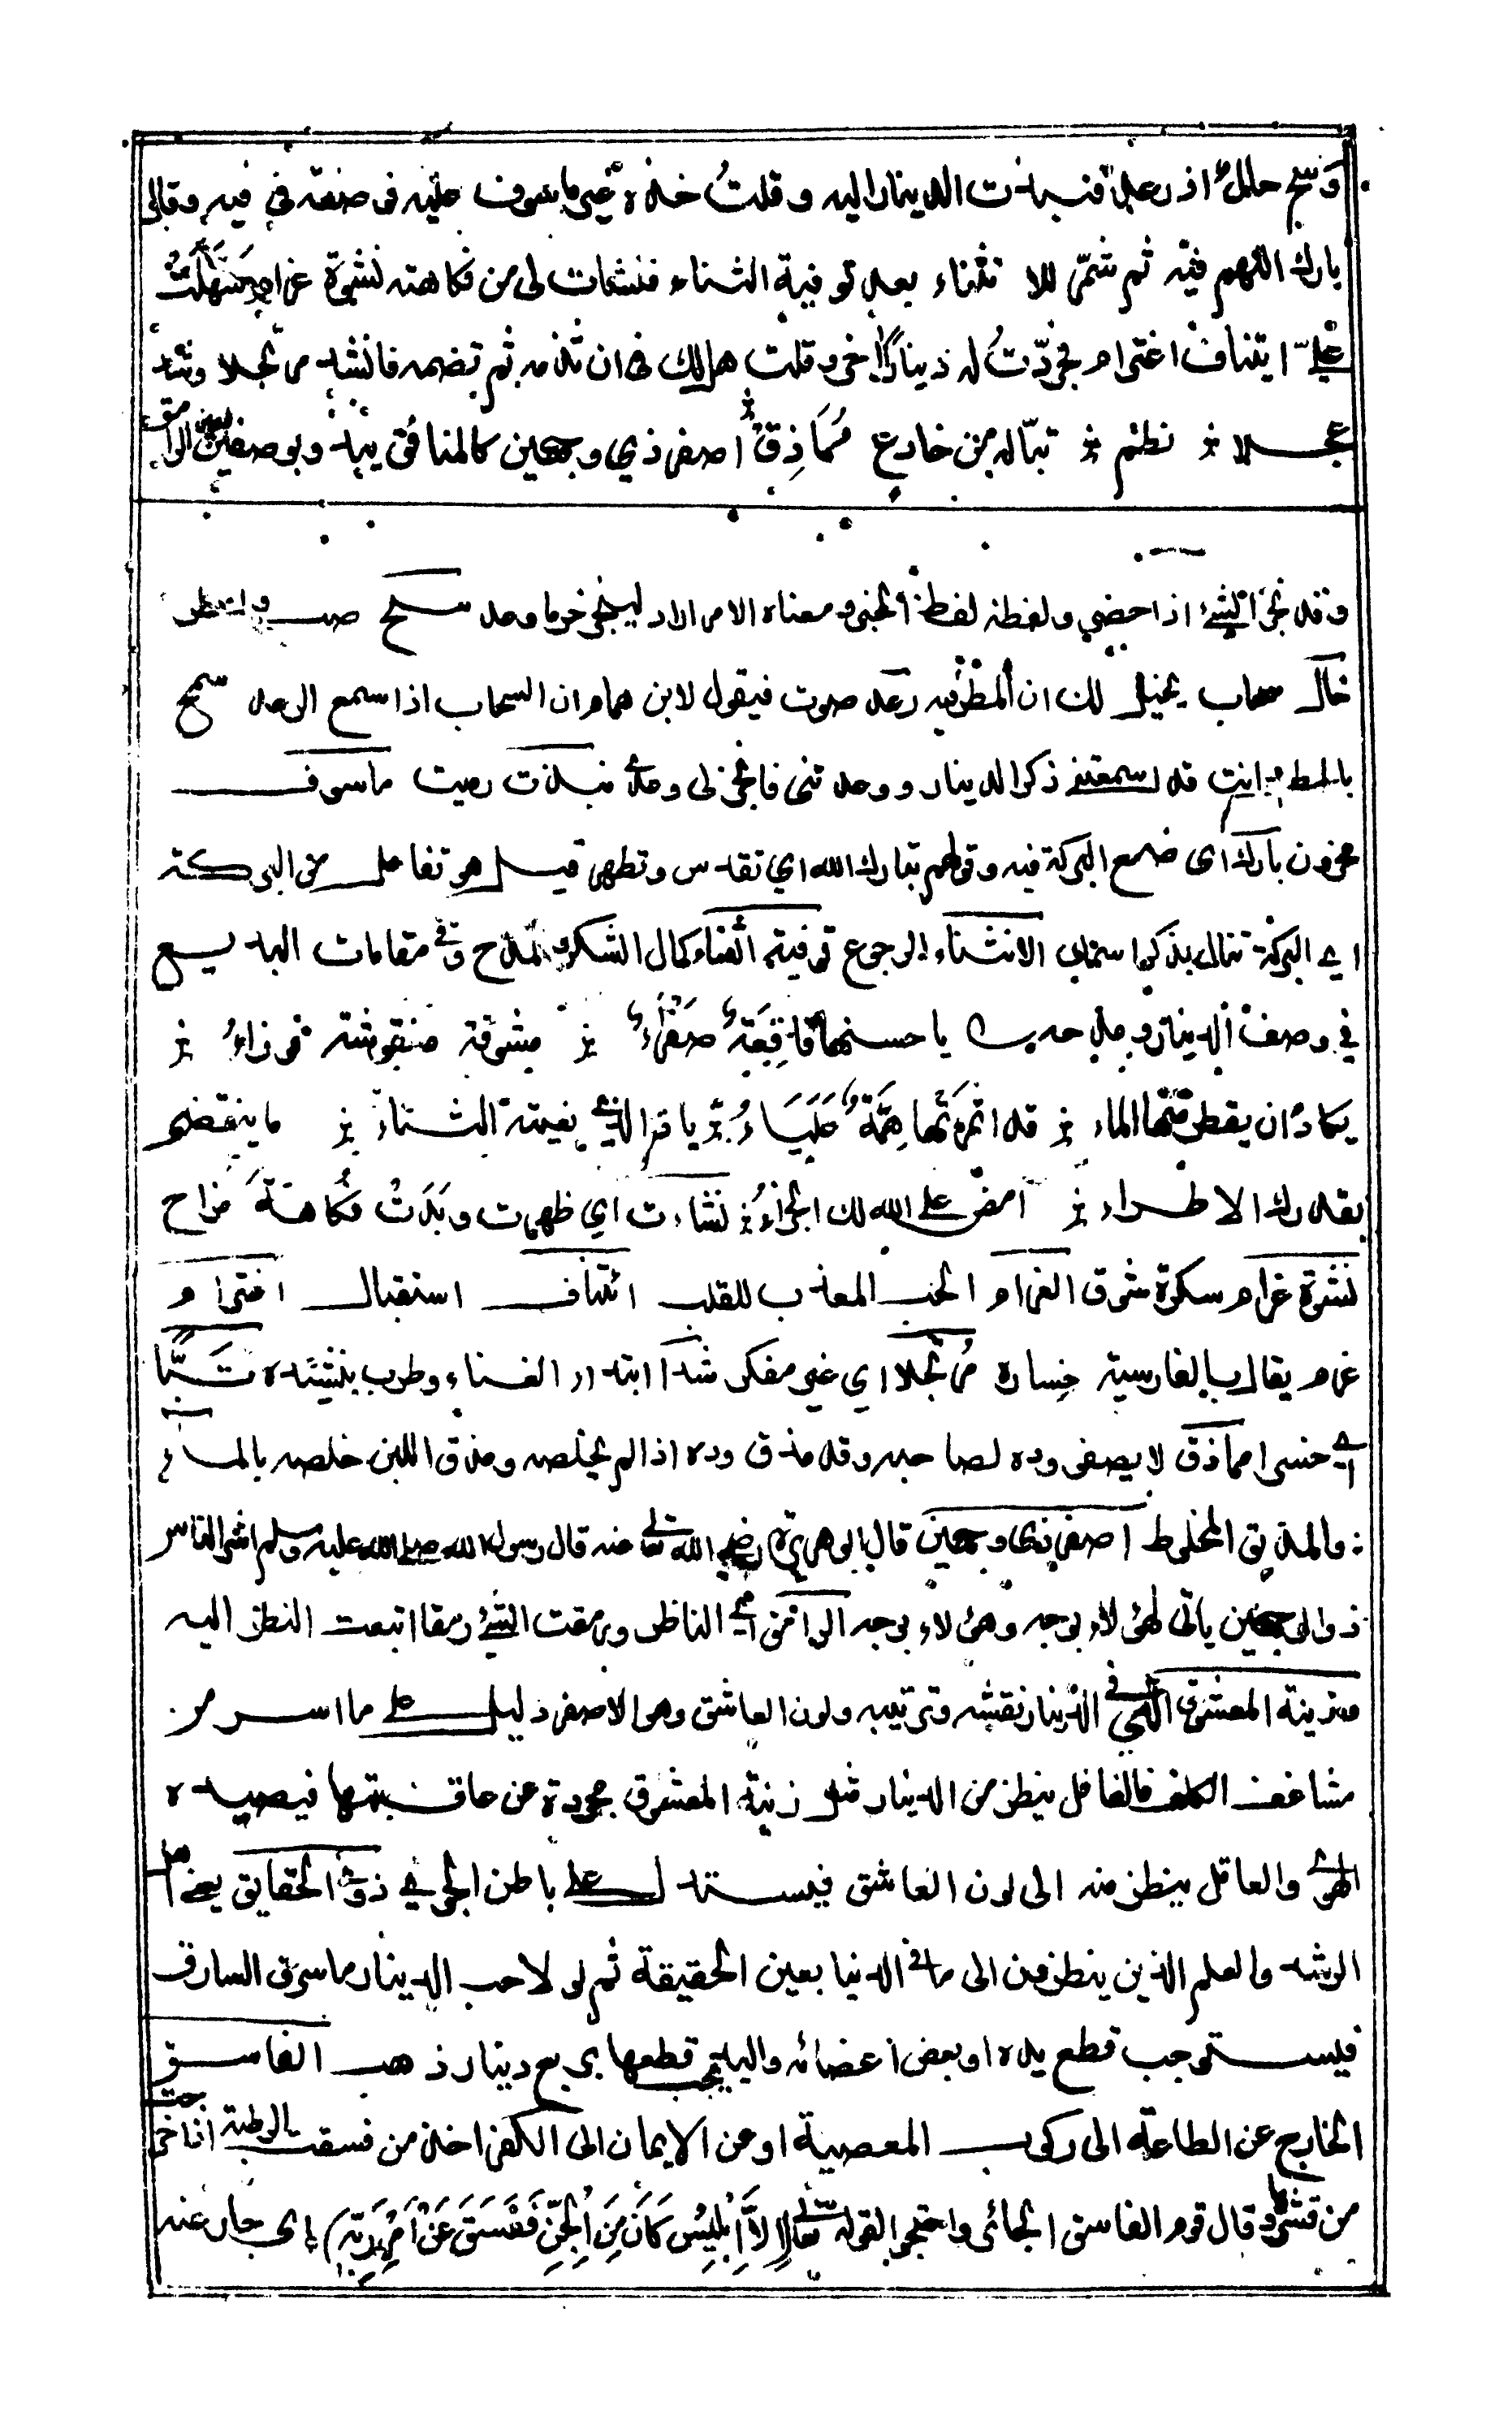 وسح خال اذ رعد فنبذت الدينار اليه وقلت خذه غير ماسوف عليه فوضعه في فيه وقال
بارك اللهم فيه ثم شمر للانثناء بعد توفية الثناء فنشات لي من فكاهته نشوة غرام سهلت
علي ايتناف اغترام فجردت له دينارا اخر وقلت هل لك في ان تذمه ثم تضمه فانشد مرتجلا وشدا
عجلا نظم تبا له من خادع مماذق اصفر ذي وجهين كالمنافق يبدو بوصفين لعين الرامق
وقد نجز الشئ اذا حضر ولفظه لفظ الخبر ومعناه الامر اراد لينجز حر ما وعد سح صب
خال سحاب يخيل لك ان المطر فيه رعد صوت فيقول لابن همام ان السحاب اذا سمع الرعد سح
بالمطر وانت قد اسمعتني ذكر الدينار ووعدتني فانجز لي وعدك نبذت رميت ماسوف
محزون بارك اي ضع البركة فيه وقولهم تبارك الله اي تقدس وتطهر قيل هو تفاعل من البركة
اي البركة تنال بذكر اسمك الانثناء الرجوع توفية الثناء كمال الشكر والمدح وفي مقامات البديع
في وصف الدينار يا حسنها فاقعة صفراء ممشوقة منقوشة قوراء
يكاد ان يقطر منها الماء قد اثمرتها همة علياء يا ذا الذي يعنيه الثناء ما ينقضي
بقدرك الاطراء امض على الله لك الجزاء نشات اي ظهرت وبدت فكاهة مزاح
نشوة غرام سكرة شوق الغرام الحب المعذب للقلب ائتناف استقبال اغترام
غرم يقال بالفارسية خساره مرتجلا اي غير مفكر شدا ابتدا الغناء وطرب بنشيده تبا
اي خسرا مماذق لا يصفي وده لصاحبه وقد مذق وده اذا لم يخلصه ومذق اللبن خلطه بالماء
والمذيق المخلوط اصفر ذي وجهين قال ابو هريرة رضي الله تعالى عنه قال رسول الله صلى الله عليه وسلم اشر الناس
ذو الوجهين ياتي لهؤلاء بوجه وهؤلاء بوجه الرامق اي الناظر ورمقت الشئ رمقا اتبعت النظر اليه
وزينة المعشوق التي في الدينار نقشه وترتيبه ولون العاشق وهو الاصفر دليل على ما اسر من
مشاغف الكلف فالغافل ينظر من الدينار مثل زينة المعشوق مجردة عن عاقبتها فيصيده
الهوى والعاقل ينظر منه الى لون العاشق فيستدل على باطن الجوى ذوي الحقايق يعني اهل
الرشد والعلم الذين ينظرون الى ما في الدنيا بعين الحقيقة ثم لولا حب الدينار ما سرق السارق
فيستوجب قطع يده او بعض اعضائه واليد يجب قطعها بربع دينار ذهب الفاسق
الخارج عن الطاعة الى ركوب المعصية او عن الايمان الى الكفر اخذ من فسقت الرطبة اذا خرجت
من قشرها وقال قوم الفاسق الجائر واحتجوا بقوله تعالى (الا ابليس كان من الجن ففسق عن امر ربه) اي جار عنه